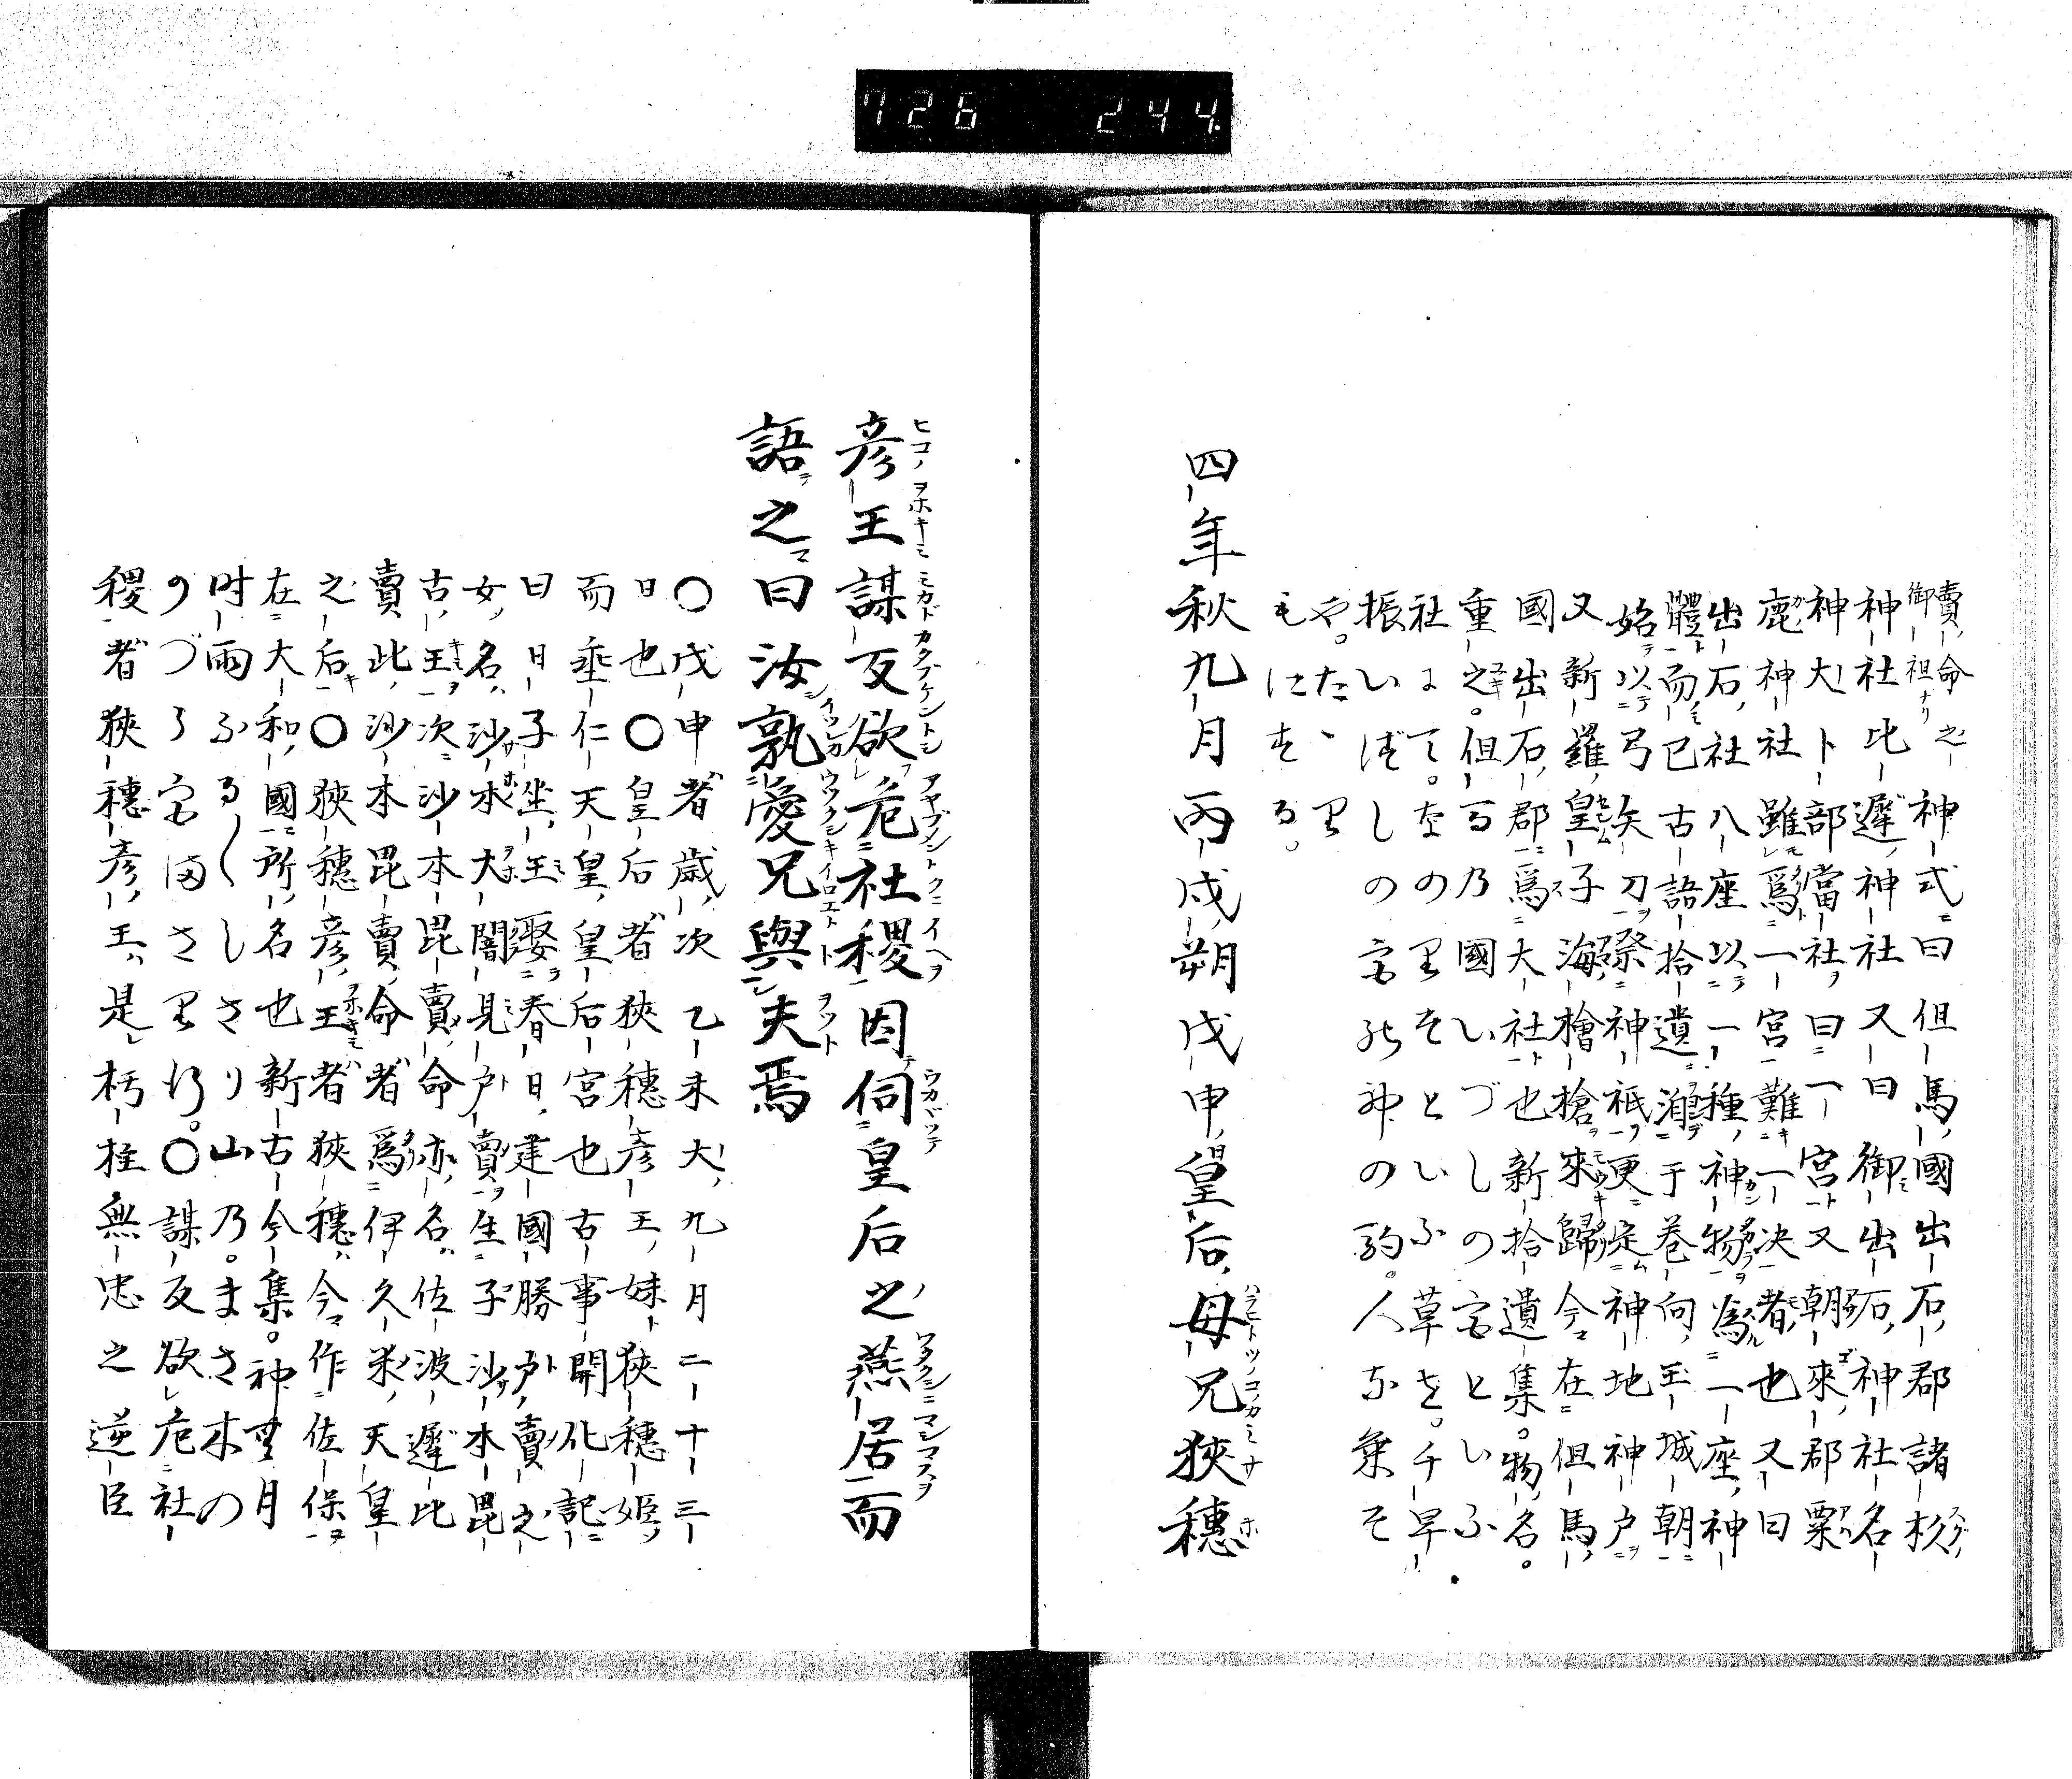 726 244
賣命之神式曰但馬國出石郡諸杉
御祖ナリ
神社比遲神社又曰御出石神社名
神大卜部當社曰一宮又朝來郡粟
鹿神社雖爲一宮難一决者也又曰
出石社八座以一種神物爲一座神
體而已古語拾遺瀚于卷向玉城朝
始以弓矢刀祭神祇更定神地神戸
又新羅皇子海檜槍來歸今在但馬
國出石郡爲大社也新拾遺集。物名。
重之。但馬乃國いづしの宮といふ
社にて。なのりそといふ草を。千早
振いづしの宮能神の駒。人な乗そ
や。たゝり
もにそする。
四年秋九月丙戌朔戊申皇后母兄狹穗
彦王謀反欲危社稷因伺皇后之燕居而
語之曰汝孰愛兄與夫焉
〇戊申者歳次乙未大九月二十三
日也〇皇后者狹穗彦王妹狹穗姫
而垂仁天皇皇后宮也古事開化記
曰日子坐王娶春日建國勝戸賣之
女名沙本大闇見戸賣生子沙本毘
古王次沙本毘賣命亦名佐波遲比
賣此沙本毘賣命者爲伊久米天皇
之后〇狹穗彦王者狹穗今作佐保
在大和國所名也新古今集。神無月
時雨ふるらしさほ山乃。まさ木の
〇謀反欲危社
稷者狹穗彦王是朽柱無忠之逆臣